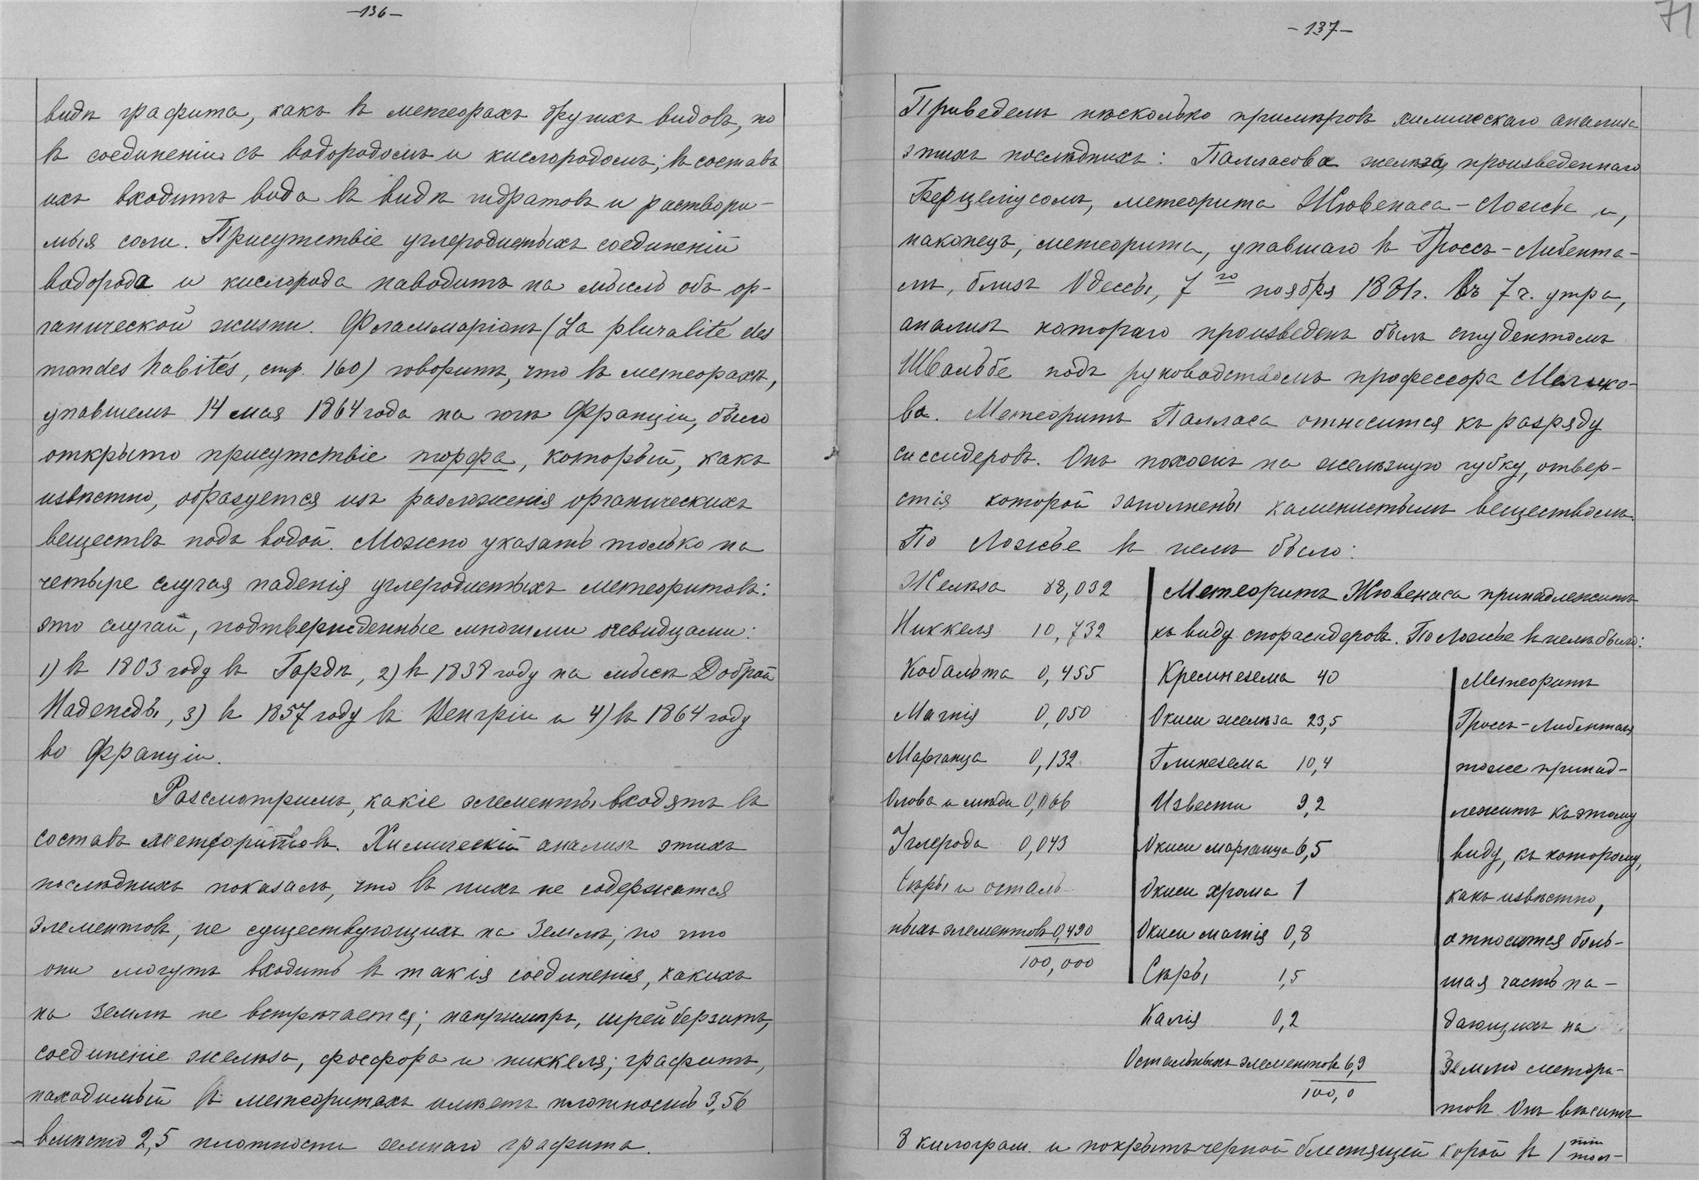 —136—
видѣ графита, какъ въ метеорахъ другихъ видовъ, но
въ соединеніи съ водородомъ и кислородомъ; въ составъ
ихъ входитъ вода въ видѣ гидратовъ и раствори-
мыя соли. Присутствіе углеродистыхъ соединеній
водорода и кислорода наводитъ на мысль объ ор-
ганической жизни. Фламмаріонъ (La pluralité des
mondes habités, стр. 160) говоритъ, что въ метеорахъ,
упавшемъ 14 мая 1864 года на югѣ Франціи, было
открыто присутствіе торфа, который, какъ
извѣстно, образуется изъ разложенія органическихъ
веществъ подъ водой. Можно указать только на
четыре случая паденія углеродистыхъ метеоритовъ:
это случаи, подтвержденные многими очевидцами:
1) въ 1803 году въ Гардѣ, 2) въ 1838 году на мысѣ Доброй
Надежды, 3) въ 1857 году въ Венгріи и 4) въ 1864 году
во Франціи.
Разсмотримъ, какіе элементы входятъ въ
составъ метеоритовъ. Химическій анализъ этихъ
послѣднихъ показалъ, что въ нихъ не содержатся
элементовъ, не существующихъ на Землѣ, но что
они могутъ входить въ такія соединенія, какихъ
на Землѣ не встрѣчается; напримѣръ, шрейберзитъ,
соединеніе желѣза, фосфора и никкеля; графитъ,
находимый въ метеоритахъ имѣетъ плотность 3,56
вмѣсто 2,5 плотности земнаго графита.
—137—
71
Приведемъ нѣсколько примѣровъ химическаго анализа
этихъ послѣднихъ: Палласова желѣза, произведеннаго
Берцеліусомъ, метеорита Жювенаса-Ложье и,
наконецъ, метеорита, упавшаго въ Гроссъ-Либента-
лѣ, близъ Одессы, 7го ноября 1881г. въ 7 ч. утра,
анализъ котораго произведенъ былъ студентомъ
Швальбе подъ руководствомъ профессора Мелико-
ва. Метеоритъ Палласа относится къ разряду
сиссидеровъ. Онъ похожъ на желѣзную губку, отвер-
стія которой заполнены каменистымъ веществомъ.
По Ложье въ немъ было:
Желѣза 88,032
Никкеля 10,732
Кобальта 0,455
Магнія 0,050
Марганца 0,132
Олова и мѣди 0,066
Углерода 0,043
Сѣры и осталь-
ныхъ элементовъ 0,490
100,000
Метеоритъ Жювенаса принадлежитъ
къ виду спорасидеровъ. По Ложье въ немъ было:
Кремнезема 40
Окиси желѣза 23,5
Глинезема 10,4
Извести 9,2
Окиси марганца 6,5
Окиси хрома 1
Окиси магнія 0,8
Сѣры 1,5
Калія 0,2
Остальныхъ элементовъ 6,9
100,0
Метеоритъ
Гроссъ-Либенталя
тоже принад-
лежитъ къ этому
виду, къ которому,
какъ извѣстно,
относится боль-
шая часть па-
дающихъ на
Землю метеори-
товъ. Онъ вѣситъ
8 килограм. и покрытъ черной блестящей корой въ 1 mm тол-